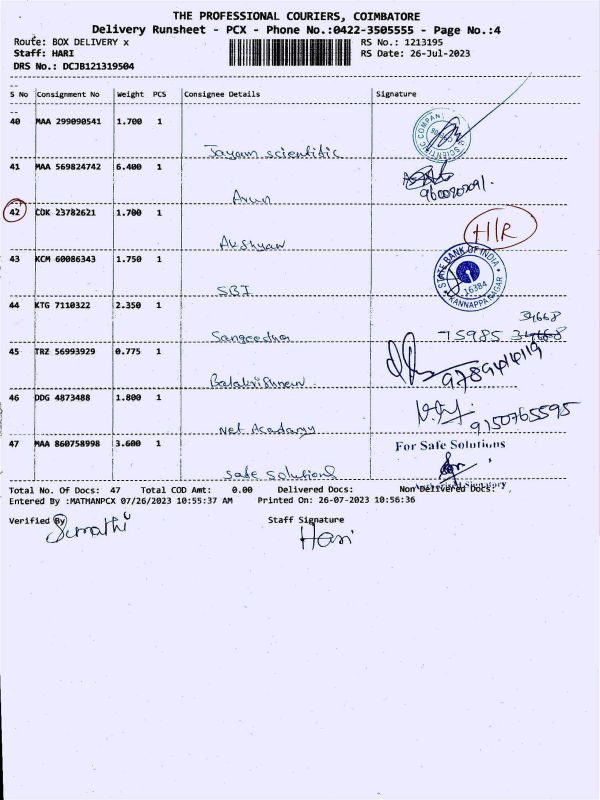 THE PROFESSIONAL COURIERS, COIMBATORE
Delivery Runsheet - PCX - Phone No.:0422-3505555 - Page No.:4
Route: BOX DELIVERY x RS No.: 1213195
Staff: HARI RS Date: 26-Jul-2023
DRS No.: DCJB121319504
S No Consignment No Weight PCS Consignee Details Signature
40 MAA 299090541 1.700 1
Jayam scientific
41 MAA 569824742 6.400 1
Arun
42 CDK 23782621 1.700 1
Akshyan H/R
43 KCM 60086343 1.750 1
SBI STATE BANK OF INDIA 16384 KANNAPPA NAGAR
44 KTG 7110322 2.350 1
34668
Sangeedha 75985 34668
45 TRZ 56993929 0.775 1
Balakrishnan 9789414119
46 DDG 4873488 1.800 1
Net Acadamy 9150765595
47 MAA 860758998 3.600 1 For Safe Solutions
Safe solutions
Authorised Signatory
Total No. Of Docs: 47 Total COD Amt: 0.00 Delivered Docs: Non Delivered Docs:
Entered By :MATHANPCX 07/26/2023 10:55:37 AM Printed On: 26-07-2023 10:56:36
Verified By Staff Signature
Sumathi Hari